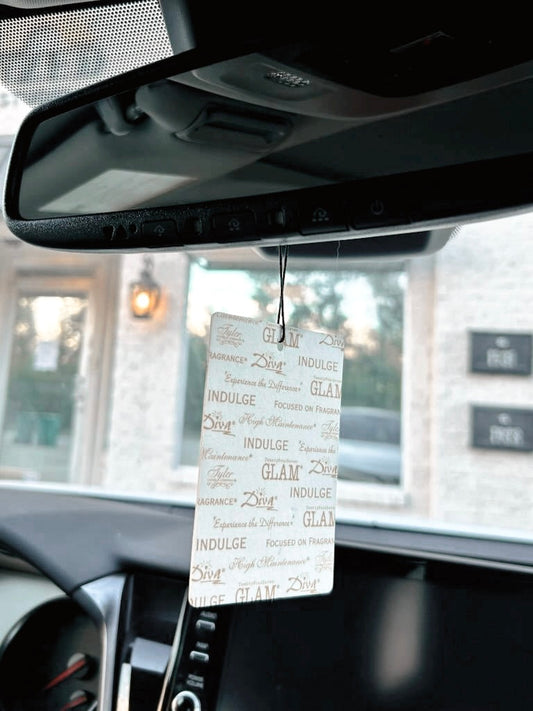 Tyler GLAM® Diva
FRAGRANCE® Diva® INDULGE
"Experience the Difference" GLAM
INDULGE FOCUSED ON FRAGR
Diva® High Maintenance®
INDULGE "Experience
Maintenance® GLAM® Diva
Tyler INDULGE
RAGRANCE® Diva®
"Experience the Difference" GLAM
INDULGE FOCUSED ON FRAGRAN
Diva® High Maintenance® Tyler
GLAM® Diva
ULGE